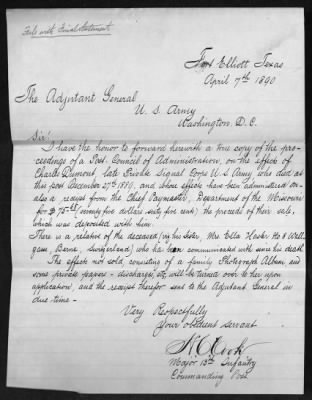 File with Final Statement
Fort Elliott Texas
April 7th 1890
The Adjutant General
U. S. Army
Washington. D. C.
Sir!
I have the honor to forward herewith a true copy of the pro-
ceedings of a Post Council of Administration, on the effects of
Charles Dumont, late Private Signal Corps U. S. Army who died at
this post December 27th 1889, and whose effects have been administered on-
also a receipt from the Chief Paymaster, Department of the Missouri
for $ 75 (seventy five dollars sixty five cents) the proceeds of their sale,
which was deposited with him.
There is a relative of the deceased (viz his Sister, Mrs Ella
(Berne, Switzerland) who has been communicated with since his death.
The effects not sold, consisting of a family Photograph Album and
some private papers - discharges, etc, will be turned over to her upon
application, and the receipt therefor sent to the Adjutant General in
due time -
Very Respectfully
Your obedient servant
Major 13th Infantry
Commanding Post